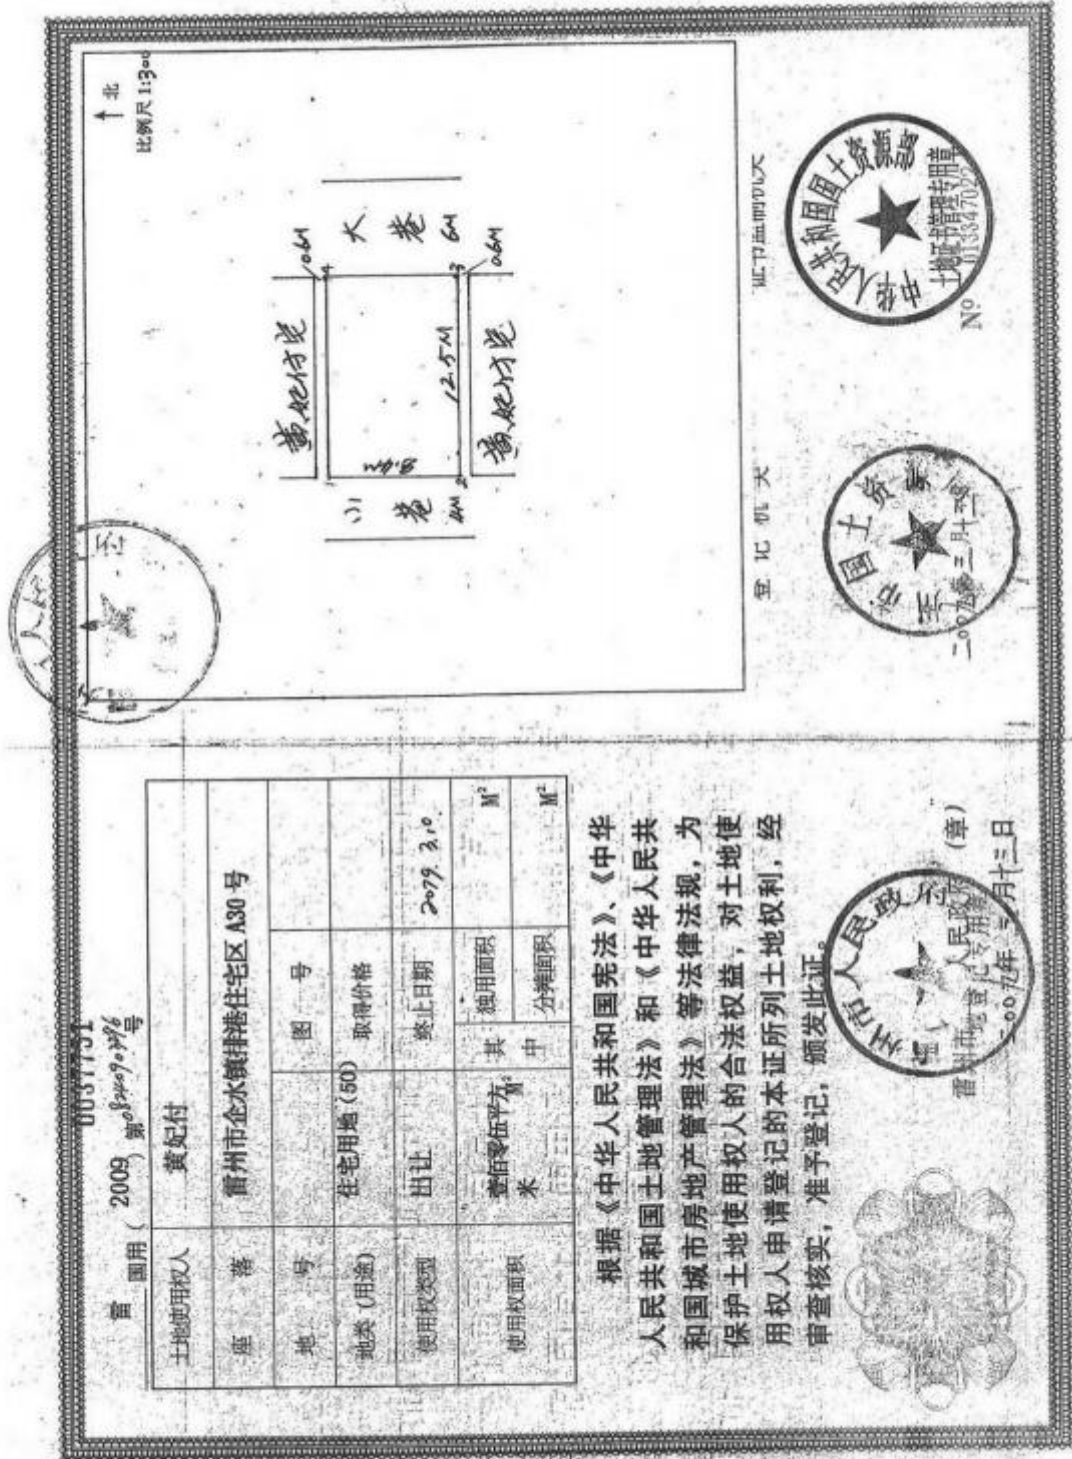 0037751
雷 国用（2009）第 号
土地使用权人 黄妃付
座 落 雷州市企水镇排港住宅区 A30 号
地 号 图 号
地类 (用途) 住宅用地 (50) 取得价格
使用权类型 出让 终止日期 2079. 3.10
使用权面积 壹佰零伍平方米 M² 其中 独用面积 M²
分摊面积 M²
根据《中华人民共和国宪法》、《中华
人民共和国土地管理法》和《中华人民共
和国城市房地产管理法》等法律法规，为
保护土地使用权人的合法权益，对土地使
用权人申请登记的本证所列土地权利，经
审查核实，准予登记，颁发此证。
州市人民政府
雷州市人民政府 (章)
土地登记专用章
二〇〇九年三月十三日
北
比例尺 1:300
黄妃付宅
0.6M
1
4
小巷
4M
大巷
6M
12.5M
2
3
黄妃付宅
0.6M
登 记 机 关
市国土资
二〇〇九年三月十三
证书监制机关
中华人民共和国国土资源部
土地证书管理专用章
Nº 013347022